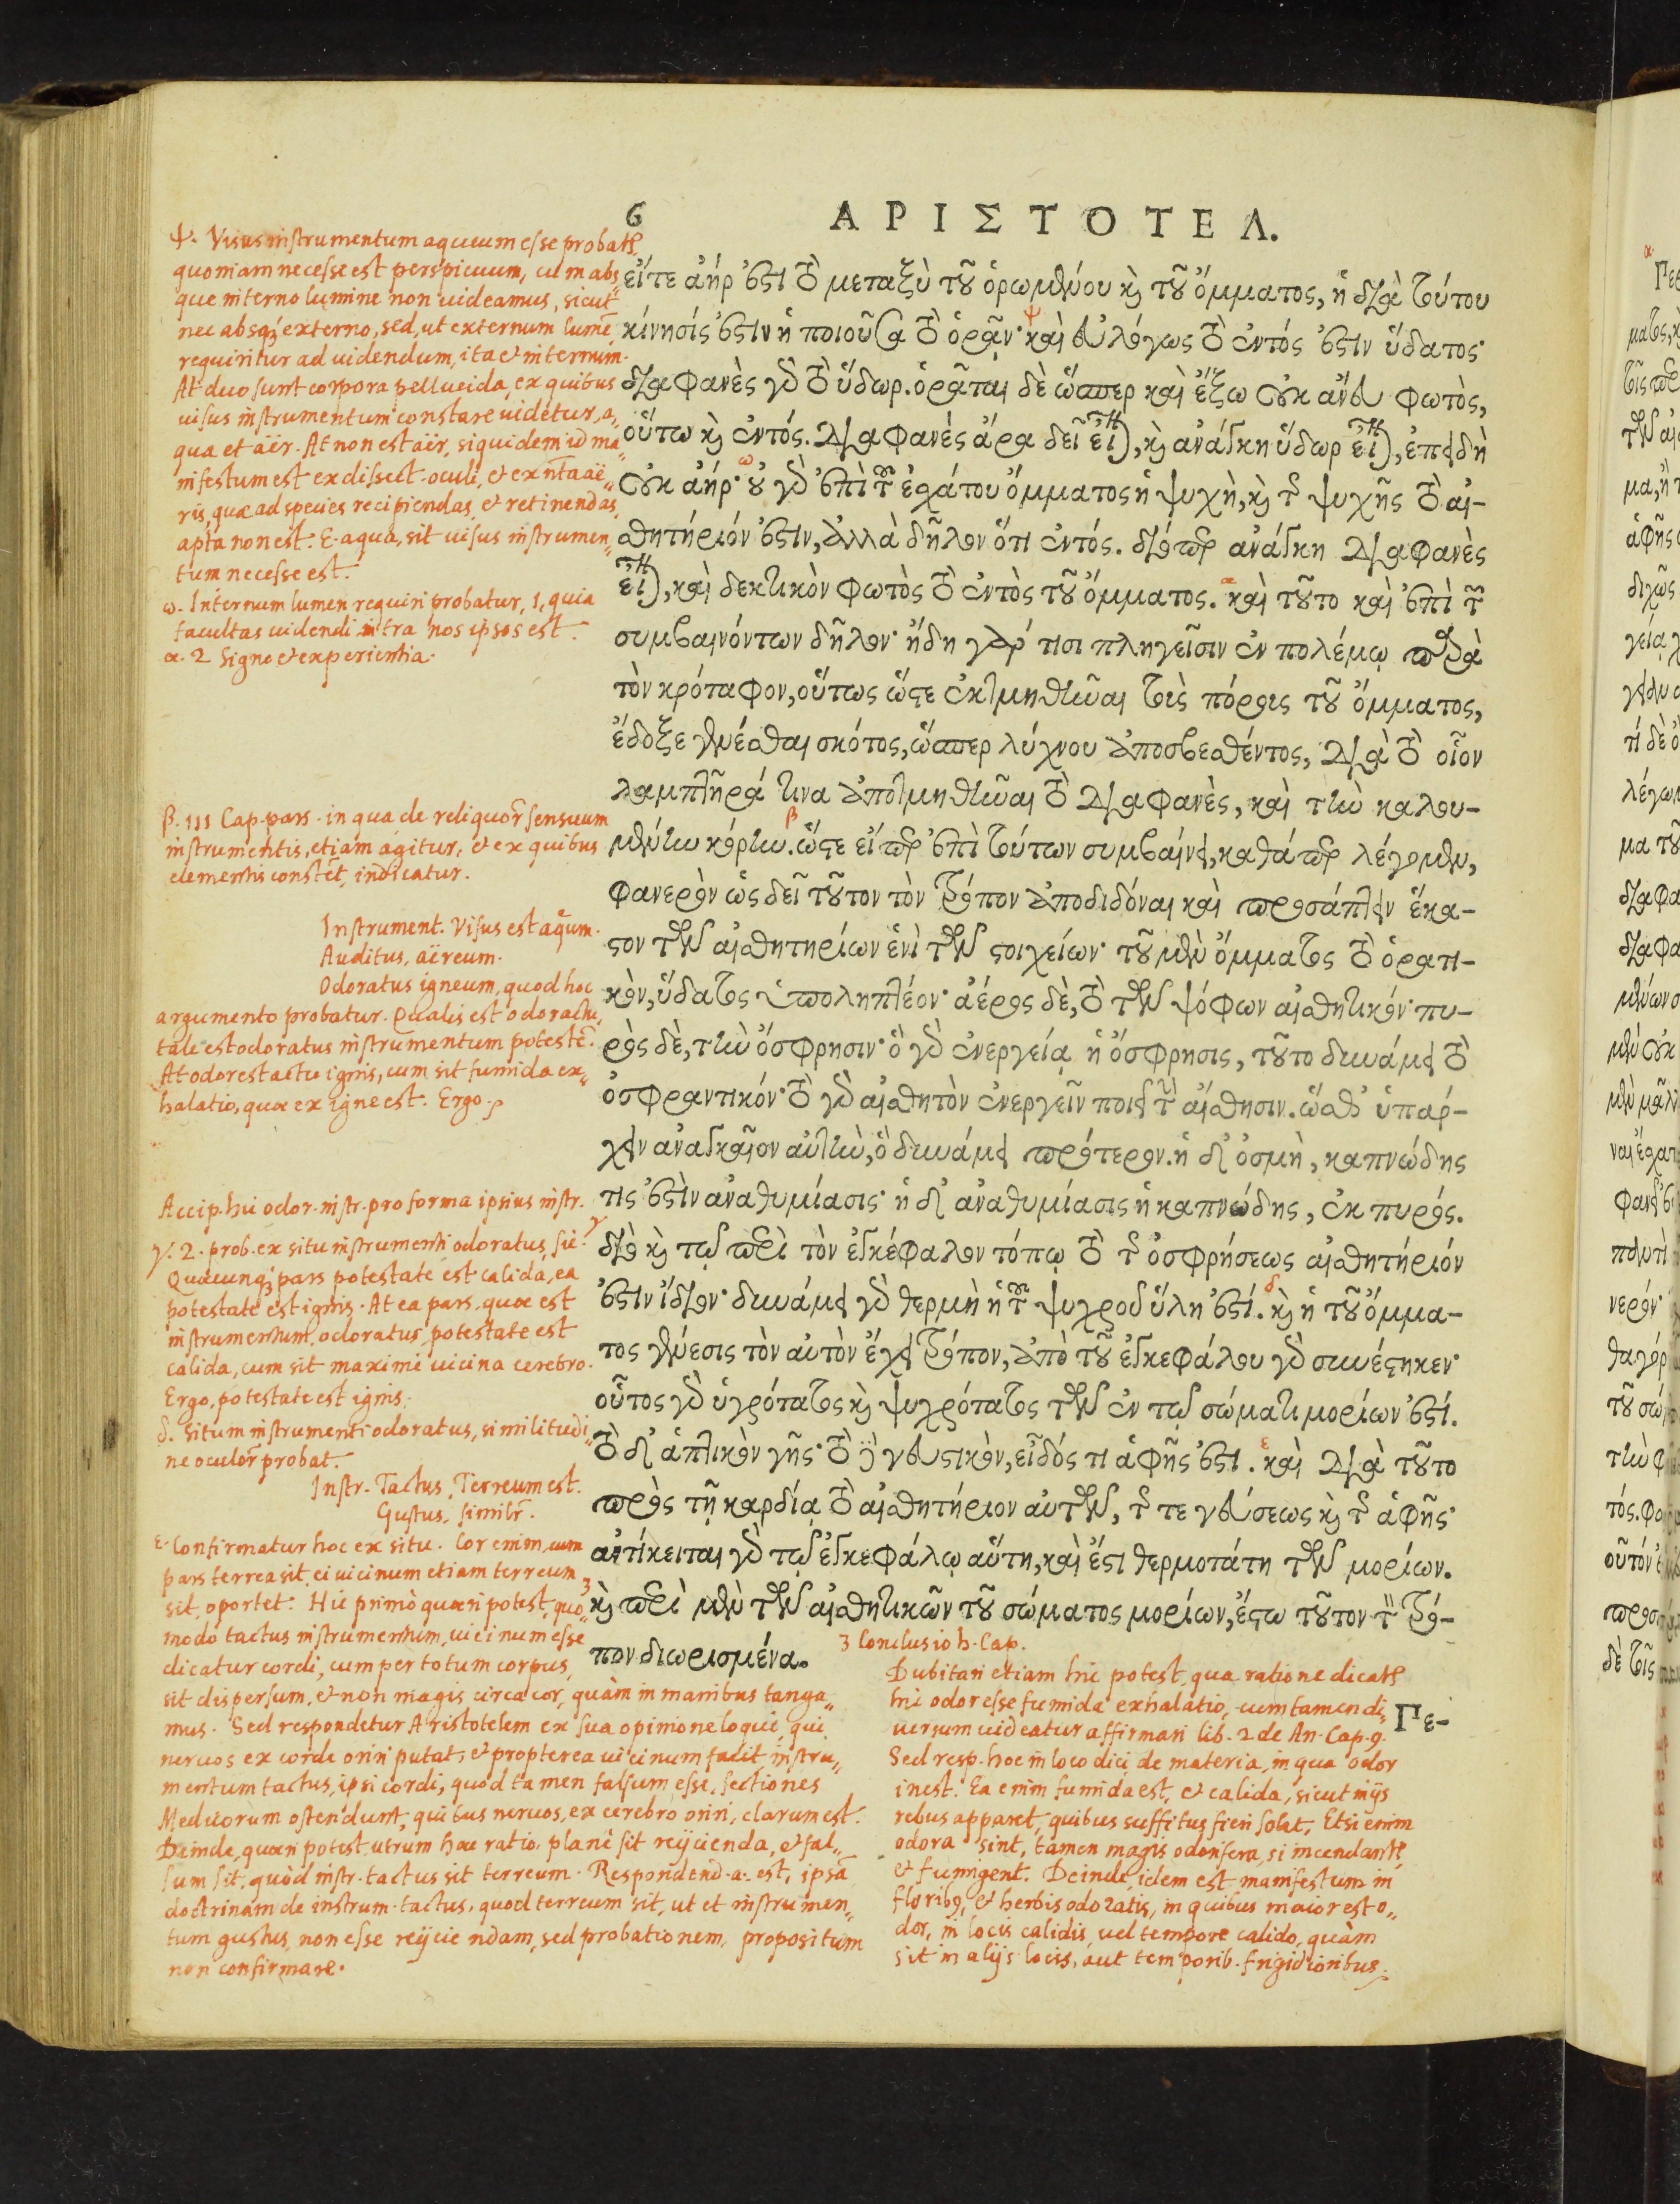 6
ΑΡΙΣΤΟΤΕΛ.
εἴτε ἀήρ ἐστι τὸ μεταξὺ τοῦ ὁρωμένου καὶ τοῦ ὄμματος, ἡ διὰ τούτου
κίνησίς ἐστιν ἡ ποιοῦσα τὸ ὁρᾷν· καὶ εὐλόγως τὸ ἐντός ἐστιν ὕδατος·
διαφανὲς γὰρ τὸ ὕδωρ. ὁρᾶται δὲ ὥσπερ καὶ ἔξω οὐκ ἄνευ φωτὸς,
οὕτω καὶ ἐντός. διαφανές ἄρα δεῖ εἶναι, καὶ ἀνάγκη ὕδωρ εἶναι, ἐπειδὴ
οὐκ ἀήρ· οὐ γὰρ ἐπὶ τοῦ ἐσχάτου ὄμματος ἡ ψυχὴ, καὶ τῆς ψυχῆς τὸ αἰ-
σθητήριόν ἐστιν, ἀλλὰ δῆλον ὅτι ἐντός. διόπερ ἀνάγκη διαφανὲς
εἶναι, καὶ δεκτικὸν φωτὸς τὸ ἐντὸς τοῦ ὄμματος. καὶ τοῦτο καὶ ἐπὶ τῶν
συμβαινόντων δῆλον· ἤδη γάρ τισι πληγεῖσιν ἐν πολέμῳ παρὰ
τὸν κρόταφον, οὕτως ὥστε ἐκτμηθῆναι τοὺς πόρους τοῦ ὄμματος,
ἔδοξε γενέσθαι σκότος, ὥσπερ λύχνου ἀποσβεσθέντος, διὰ τὸ οἷον
λαμπτῆρά τινα ἀποτμηθῆναι τὸ διαφανὲς, καὶ τὴν καλου-
μένην κόρην. ὥστε εἴπερ ἐπὶ τούτων συμβαίνει, καθάπερ λέγομεν,
φανερὸν ὡς δεῖ τοῦτον τὸν τρόπον ἀποδιδόναι καὶ προσάπτειν ἕκα-
στον τῶν αἰσθητηρίων ἑνὶ τῶν στοιχείων· τοῦ μὲν ὄμματος τὸ ὁρατι-
κὸν, ὕδατος ὑποληπτέον· ἀέρος δὲ, τὸ τῶν ψόφων αἰσθητικόν· πυ-
ρὸς δὲ, τὴν ὄσφρησιν· ὃ γὰρ ἐνεργείᾳ ἡ ὄσφρησις, τοῦτο δυνάμει τὸ
ὀσφραντικόν· τὸ γὰρ αἰσθητὸν ἐνεργεῖν ποιεῖ τὴν αἴσθησιν. ὥσθ᾽ ὑπάρ-
χειν ἀναγκαῖον αὐτὴν, ὃ δυνάμει πρότερον. ἡ δ᾽ ὀσμὴ, καπνώδης
τις ἐστὶν ἀναθυμίασις· ἡ δ᾽ ἀναθυμίασις ἡ καπνώδης, ἐκ πυρός.
διὸ καὶ τῷ περὶ τὸν ἐγκέφαλον τόπῳ τὸ τῆς ὀσφρήσεως αἰσθητήριόν
ἐστιν ἴδιον· δυνάμει γὰρ θερμὴ ἡ τοῦ ψυχροῦ ὕλη ἐστί. καὶ ἡ τοῦ ὄμμα-
τος γένεσις τὸν αὐτὸν ἔχει τρόπον, ἀπὸ τοῦ ἐγκεφάλου γὰρ συνέστηκεν·
οὗτος γὰρ ὑγρότατος καὶ ψυχρότατος τῶν ἐν τῷ σώματι μορίων ἐστί.
τὸ δ᾽ ἁπτικὸν γῆς· τὸ δὲ γευστικὸν, εἶδός τι ἁφῆς ἐστι. καὶ διὰ τοῦτο
πρὸς τῇ καρδίᾳ τὸ αἰσθητήριον αὐτῶν, τῆς τε γεύσεως καὶ τῆς ἁφῆς·
ἀντίκειται γὰρ τῷ ἐγκεφάλῳ αὕτη, καὶ ἔστι θερμοτάτη τῶν μορίων.
καὶ περὶ μὲν τῶν αἰσθητικῶν τοῦ σώματος μορίων, ἔστω τοῦτον τὸν τρό-
πον διωρισμένα.
Γε-
ψ. Visus instrumentum aqueum esse probatr,
quoniam necesse est perspicuum, cum abs,
que interno lumine non uideamus, sicut
nec absq; externo, sed, ut externum lumē
requiritur ad uidendum, ita et internum.
At duo sunt corpora pellucida, ex quibus
uisus instrumentum constare uidetur, a,
qua et aër. At non est aër, siquidem id ma,,
nifestum est ex dissect. oculi, et ex nta aë,,
ris, quæ ad species recipiendas, et retinendas,
apta non est. E. aqua, sit uisus instrumen,,
tum necesse est.
ω. Internum lumen requiri probatur, 1, quia
facultas uidendi intra nos ipsos est.
α. 2 Signo et experientia.
β. III Cap. pars. in qua de reliquor̄ sensuum
instrumentis, etiam agitur, et ex quibus
elementis constēt, indicatur.
Instrument. Visus est aqum.
Auditus, aëreum.
Odoratus igneum, quod hoc
argumento probatur. Qualis est odor actu,
tale est odoratus instrumentum potestē.
At odor est actu ignis, cum sit fumida ex,,
halatio, quæ ex igne est. Ergo.
Accip. hic odor. instr. pro forma ipsius instr.
γ. 2. prob. ex situ instrumenti odoratus, sic.
Quæcunq; pars potestate est calida, ea
potestate est ignis. At ea pars, quæ est
instrumentum odoratus, potestate est
calida, cum sit maximè uicina cerebro.
Ergo, potestate est ignis.
δ. Situm instrumenti odoratus, similitudi,,
ne oculor̄ probat.
Instr. Tactus, Terreum est.
Gustus, similr̄.
ε. Confirmatur hoc ex situ. Cor enim, cum
pars terrea sit, ei uicinum etiam terreum
sit, oportet. Hic primò quæri potest, quo,,
modo tactus instrumentum, uicinum esse
dicatur cordi, cum per totum corpus,
sit dispersum, et non magis circa cor, quàm in manibus tanga,,
mus. Sed respondetur Aristotelem ex sua opinione loqui, qui
neruos ex corde oriri putat, et propterea uicinum facit instru,,
mentum tactus, ipsi cordi, quod tamen falsum esse, sectiones
Medicorum ostendunt, quibus neruos, ex cerebro oriri, clarum est.
Deinde, quæri potest, utrum hæc ratio planè sit reijcienda, et fal,,
sum sit, quòd instr. tactus sit terreum. Respondend. a. est, ipsā
doctrinam de instrum. tactus, quod terreum sit, ut et instrumen,,
tum gustus, non esse reijciendam, sed probationem, propositum
non confirmare.
3 Conclusio h. Cap.
Dubitari etiam hic potest, qua ratione dicatr
hic odor esse fumida exhalatio, cum tamen di,,
uersum uideatur affirmari lib. 2 de An. Cap. 9.
Sed resp. hoc in loco dici de materia, in qua odor
inest. Ea enim fumida est, et calida, sicut in ijs
rebus apparet, quibus suffitus fieri solat, Etsi enim
odora sint, tamen magis odorifera, si incendantr,
et fumigent. Deinde, idem est manifestum in
floribq, et herbis odoratis, in quibus maior est o,,
dor, in locis calidis, uel tempore calido, quàm
sit in alijs locis, aut temporib. frigidioribus.